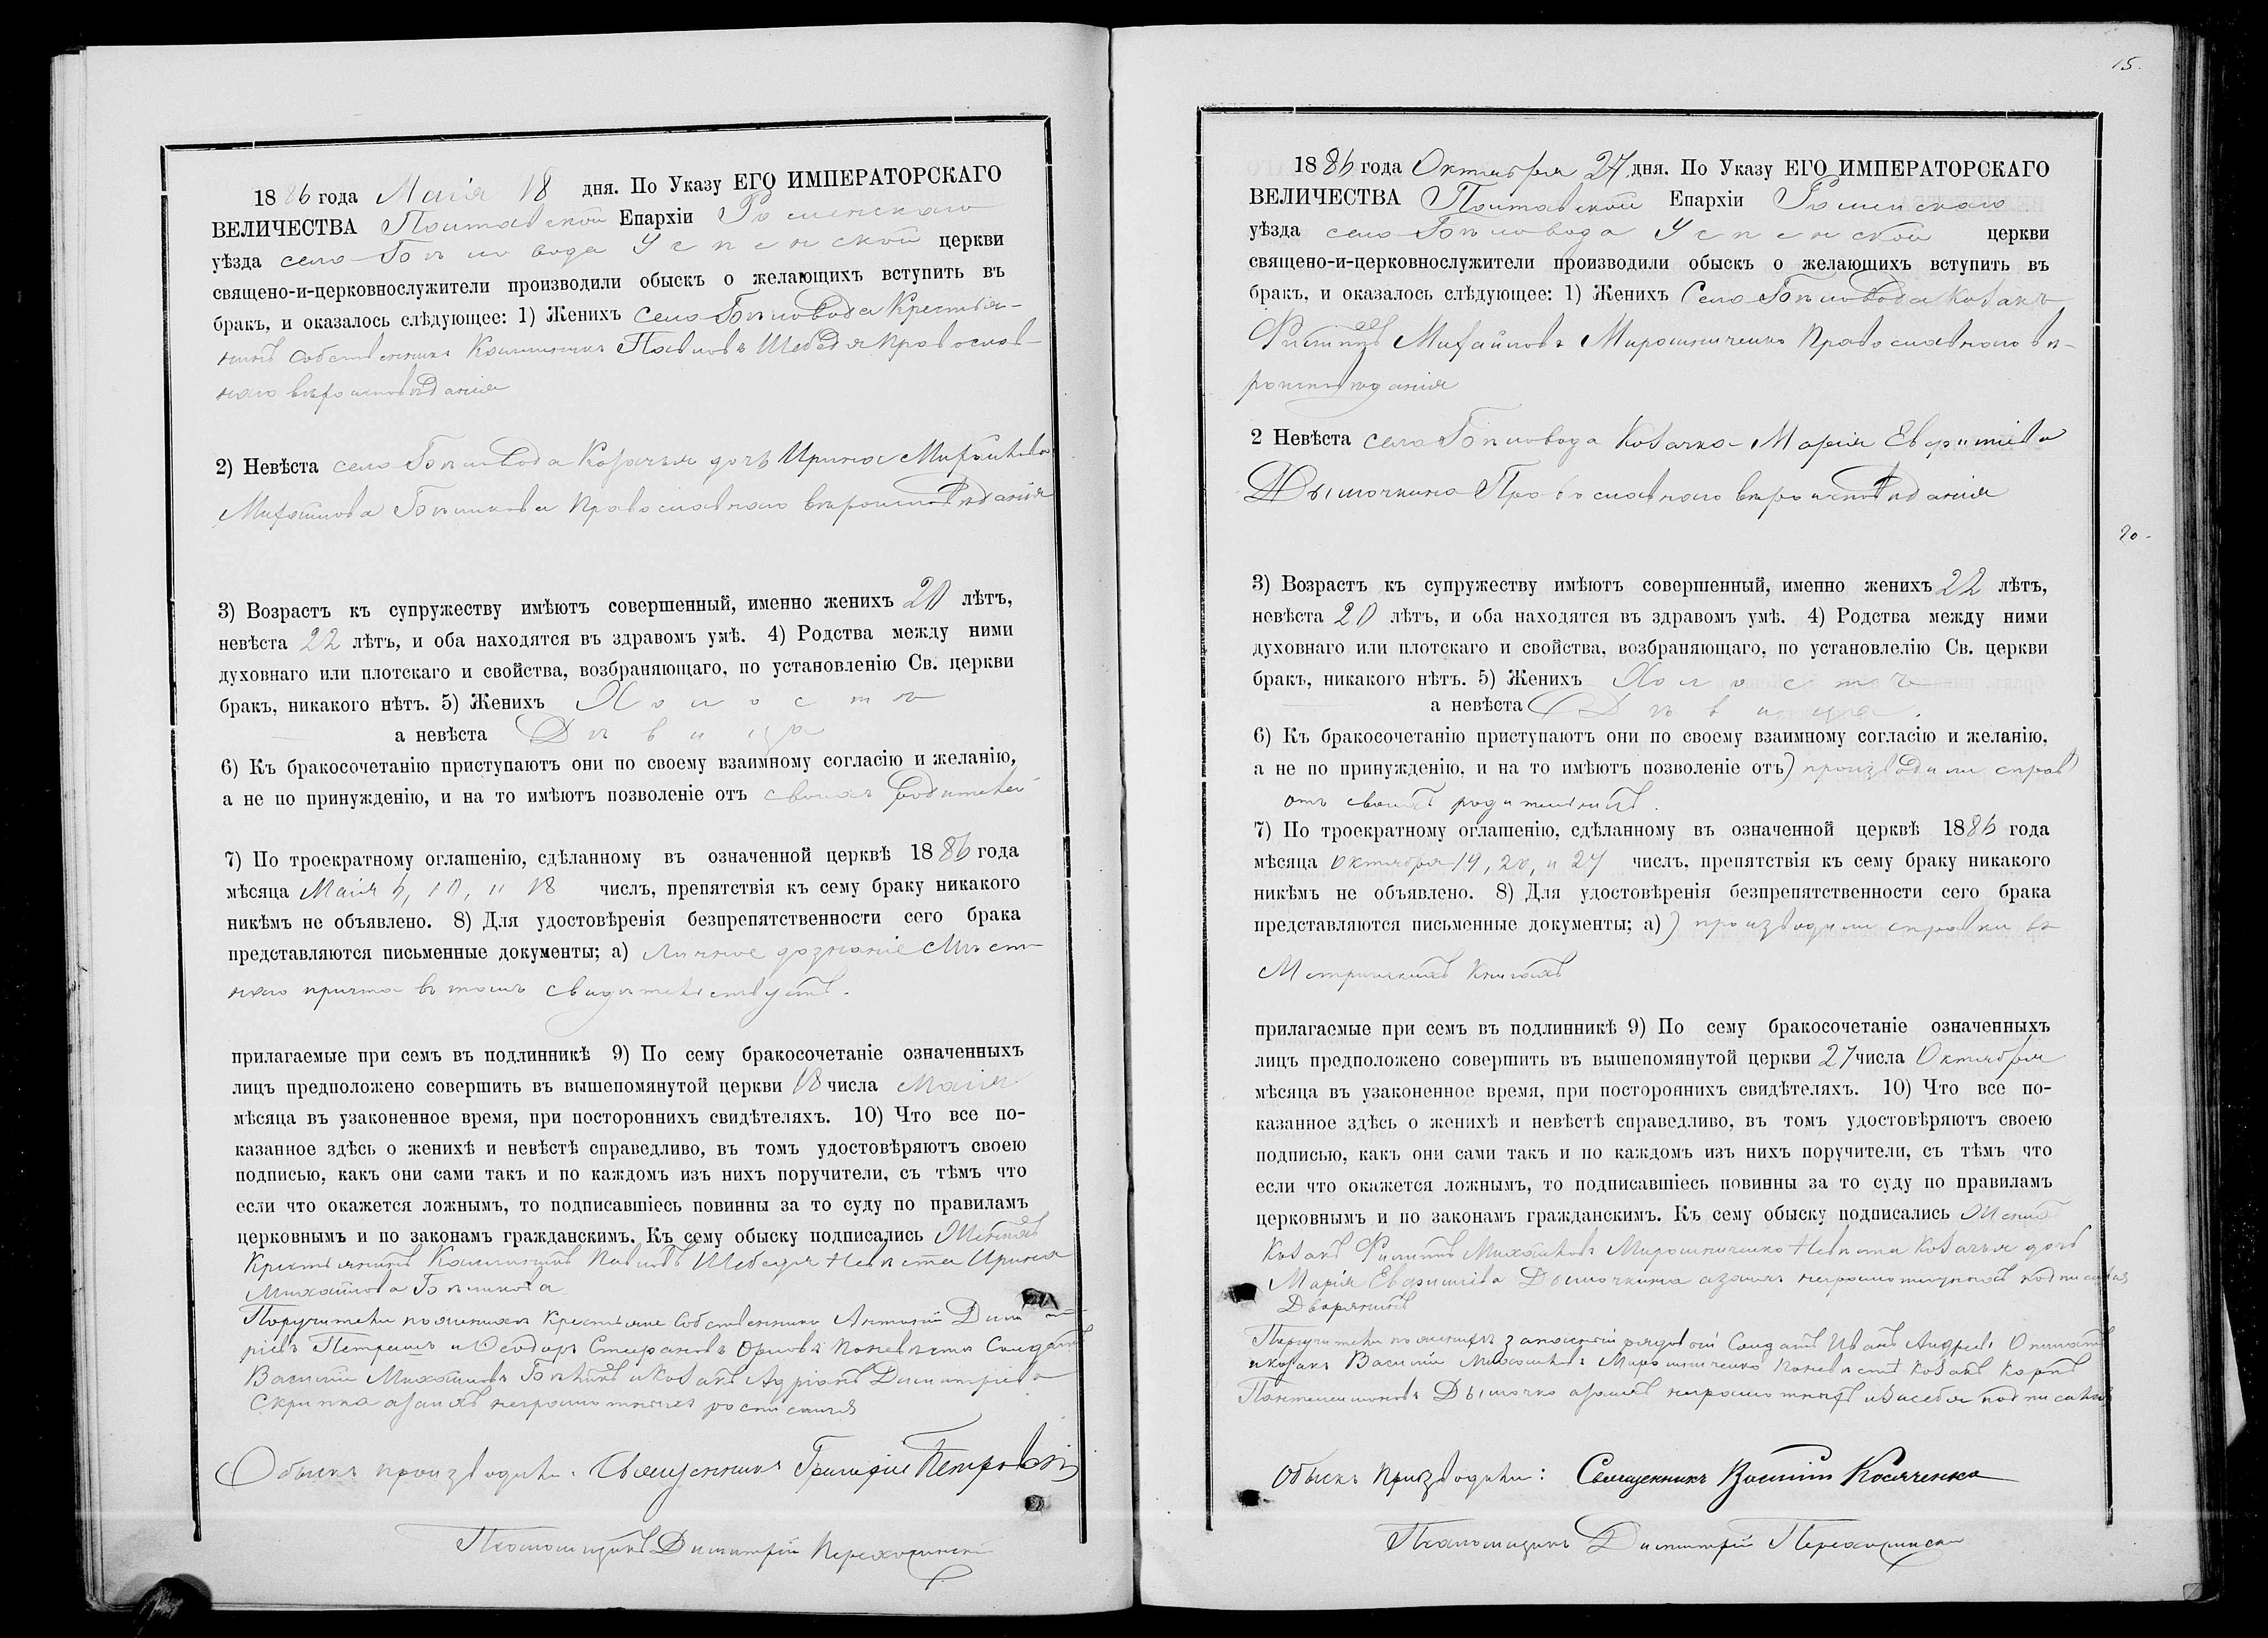 1886 года Маія 18 дня. По Указу ЕГО ИМПЕРАТОРСКАГО
ВЕЛИЧЕСТВА Полтавской Епархіи Роменскаго
уѣзда село Бѣловода Успенской церкви
священо-и-церковнослужители производили обыскъ о желающихъ вступить въ
бракъ, и оказалось слѣдующее: 1) Женихъ Село Бѣловода Крестья-
нинъ собственникъ Каллиникъ Павловъ Шебедя Православ-
наго вѣроисповѣданія
2) Невѣста село Бѣловода Козачья дочь Ирина Михайлова
Бѣликова Православнаго вѣроисповѣданія
3) Возрастъ къ супружеству имѣютъ совершенный, именно женихъ 20 лѣтъ,
невѣста 22 лѣтъ, и оба находятся въ здравомъ умѣ. 4) Родства между ними
духовнаго или плотскаго и свойства, возбраняющаго, по установленію Св. церкви
бракъ, никакого нѣтъ. 5) Женихъ Холостъ
а невѣста Дѣвица
6) Къ бракосочетанію приступаютъ они по своему взаимному согласію и желанію,
а не по принужденію, и на то имѣютъ позволеніе отъ своихъ родителей
7) По троекратному оглашенію, сдѣланному въ означенной церквѣ 1886 года
мѣсяца Маія 10, и 18 числъ, препятствія къ сему браку никакого
никѣмъ не объявлено. 8) Для удостовѣренія безпрепятственности сего брака
представляются письменные документы; а) Личное дознаніе Мѣст-
наго причта въ томъ свидѣтельствуетъ.
прилагаемые при семъ въ подлинникѣ 9) По сему бракосочетаніе означенныхъ
лицъ предположено совершить въ вышепомянутой церкви 18 числа Маія
мѣсяца въ узаконенное время, при постороннихъ свидѣтеляхъ. 10) Что все по-
казанное здѣсь о женихѣ и невѣстѣ справедливо, въ томъ удостовѣряютъ своею
подписью, какъ они сами такъ и по каждомъ изъ нихъ поручители, съ тѣмъ что
если что окажется ложнымъ, то подписавшіесь повинны за то суду по правиламъ
церковнымъ и по законамъ гражданскимъ. Къ сему обыску подписались Женихъ
Крестьянинъ Каллиникъ Павловъ Шебедя Невѣста Ирина
Михайлова Бѣликова
Поручители по женихѣ Крестьяне Собственники Антоній Димит
ріевъ Петрашъ и Ѳеодоръ Стефановъ Орловъ по невѣсте Солдатъ
Василій Михайловъ Бѣликъ и козакъ Адріанъ Димитріевъ
Скрипка а за ихъ неграмотныхъ росписался
Обыскъ производили: Священникъ Григорій Петровскій
Псаломщикъ Димитрій
15.
1886 года Октября 27 дня. По Указу ЕГО ИМПЕРАТОРСКАГО
ВЕЛИЧЕСТВА Полтавской Епархіи Роменскаго
уѣзда село Бѣловода Успенской церкви
священо-и-церковнослужители производили обыскъ о желающихъ вступить въ
бракъ, и оказалось слѣдующее: 1) Женихъ Село Бѣловода Козакъ
Филиппъ Михайловъ Мирошниченко Православнаго вѣ-
роисповѣданія
2 Невѣста село Бѣловода Козачка Марія Евфиміева
Дымочкина Православнаго вѣроисповѣданія
20.
3) Возрастъ къ супружеству имѣютъ совершенный, именно женихъ 22 лѣтъ,
невѣста 20 лѣтъ, и оба находятся въ здравомъ умѣ. 4) Родства между ними
духовнаго или плотскаго и свойства, возбраняющаго, по установлелію Св. церкви
бракъ, никакого нѣтъ. 5) Женихъ Холостъ
а невѣста Дѣвица.
6) Къ бракосочетанію приступаютъ они по своему взаимному согласію и желанію,
а не по принужденію, и на то имѣютъ позволеніе отъ) производили справ
отъ своихъ
7) По троекратному оглашенію, сдѣланному въ означенной церквѣ 1886 года
мѣсяца Октября 19, 20, и 27 числъ, препятствія къ сему браку никакого
никѣмъ не объявлено. 8) Для удостовѣренія безпрепятственности сего брака
представляются письменные документы; а)) производили справки въ
Метрическихъ Книгахъ
прилагаемые при семъ въ подлинникѣ 9) По сему бракосочетаніе означенныхъ
лицъ предположено совершить въ вышепомянутой церкви 27 числа Октября
мѣсяца въ узаконенное время, при постороннихъ свидѣтеляхъ. 10) Что все по-
казанное здѣсь о женихѣ и невѣстѣ справедливо, въ томъ удостовѣряютъ своею
подписью, какъ они сами такъ и по каждомъ изъ нихъ поручители, съ тѣмъ что
если что окажется ложнымъ, то подписавшіесь повинны за то суду по правиламъ
церковнымъ и по законамъ гражданскимъ. Къ сему обыску подписались Женихъ
Козакъ Филиппъ Михайловъ Мирошниченко Невѣста Козачья дочь
Марія Евфиміева Дымочкина а за ихъ неграмотныхъ подписался
Дворянинъ
Поручители по женихѣ запасный рядовой Солдатъ Иванъ Андреевъ
и козакъ Василій Михайловъ Мирошниченко по невѣстѣ Козакъ Карпъ
Пантелеимоновъ Дымочка а за ихъ неграмотныхъ и за себя подписался
Обыскъ производили: Священникъ Василій Косяченко
Псаломщикъ Димитрій